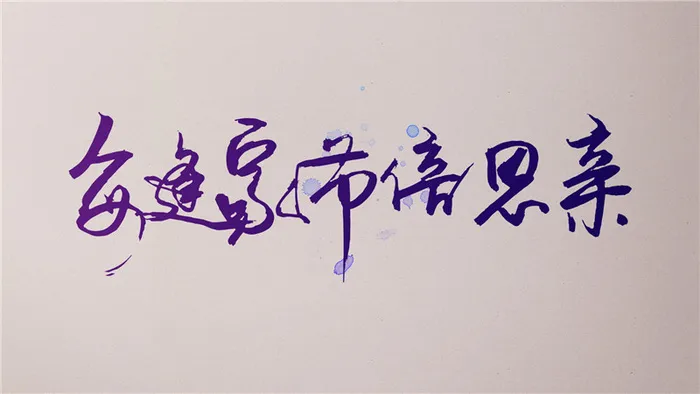 每逢节倍思亲